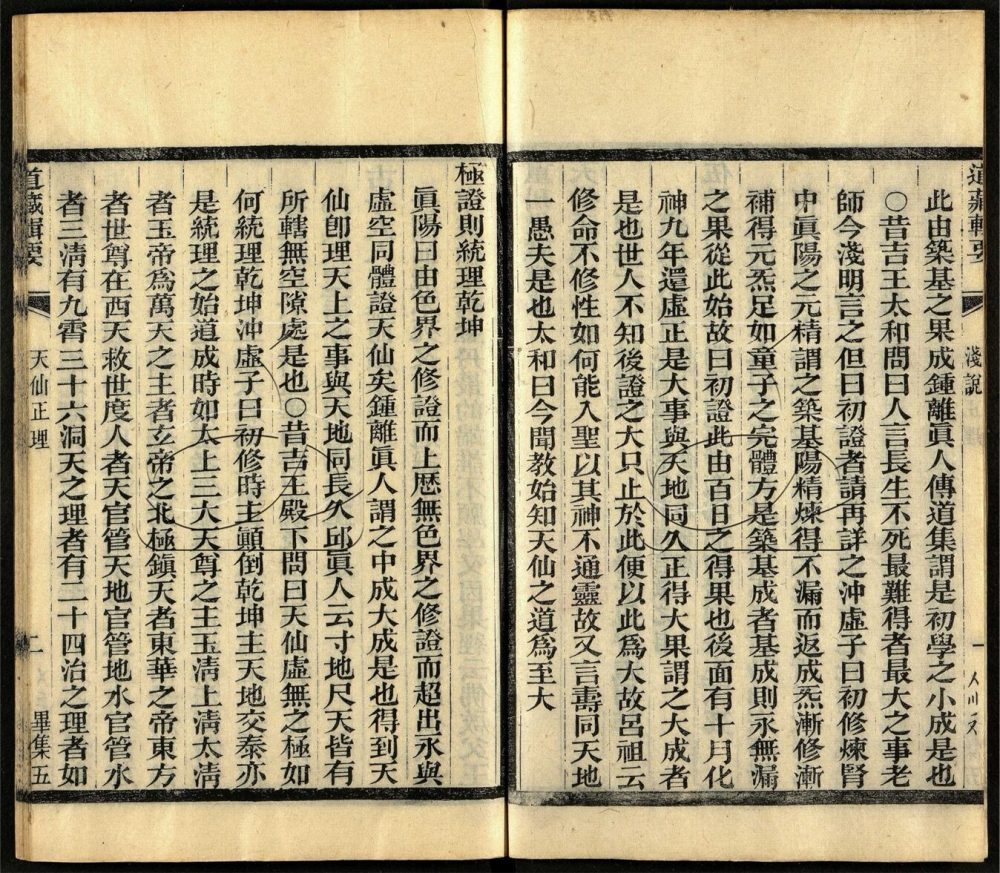 道藏輯要 淺說 一
此由築基之果成鍾離眞人傳道集謂是初學之小成是也
○昔吉王太和問曰人言長生不死最難得者最大之事老
師今淺明言之但曰初證者請再詳之沖虛子曰初修煉腎
中眞陽之元精謂之築基陽精煉得不漏而返成炁漸修漸
補得元炁足如童子之完體方是築基成者基成則永無漏
之果從此始故曰初證此由百日之得果也後面有十月化
神九年還虛正是大事與天地同久正得大果謂之大成者
是也世人不知後證之大只止於此便以此爲大故呂祖云
修命不修性如何能入聖以其神不通靈故又言壽同天地
一愚夫是也太和曰今聞教始知天仙之道爲至大
極證則統理乾坤
眞陽曰由色界之修證而上歷無色界之修證而超出永與
虛空同體證天仙矣鍾離眞人謂之中成大成是也得到天
仙卽理天上之事與天地同長久邱眞人云寸地尺天皆有
所轄無空隙處是也○昔吉王殿下問曰天仙虛無之極如
何統理乾坤沖虛子曰初修時主顚倒乾坤主天地交泰亦
是統理之始道成時如太上三大天尊之主玉淸上淸太淸
者玉帝爲萬天之主者玄帝之北極鎭天者東華之帝東方
者世尊在西天救世度人者天官管天地官管地水官管水
者三淸有九霄三十六洞天之理者有二十四治之理者如
道藏輯要 天仙正理 二 畢集五